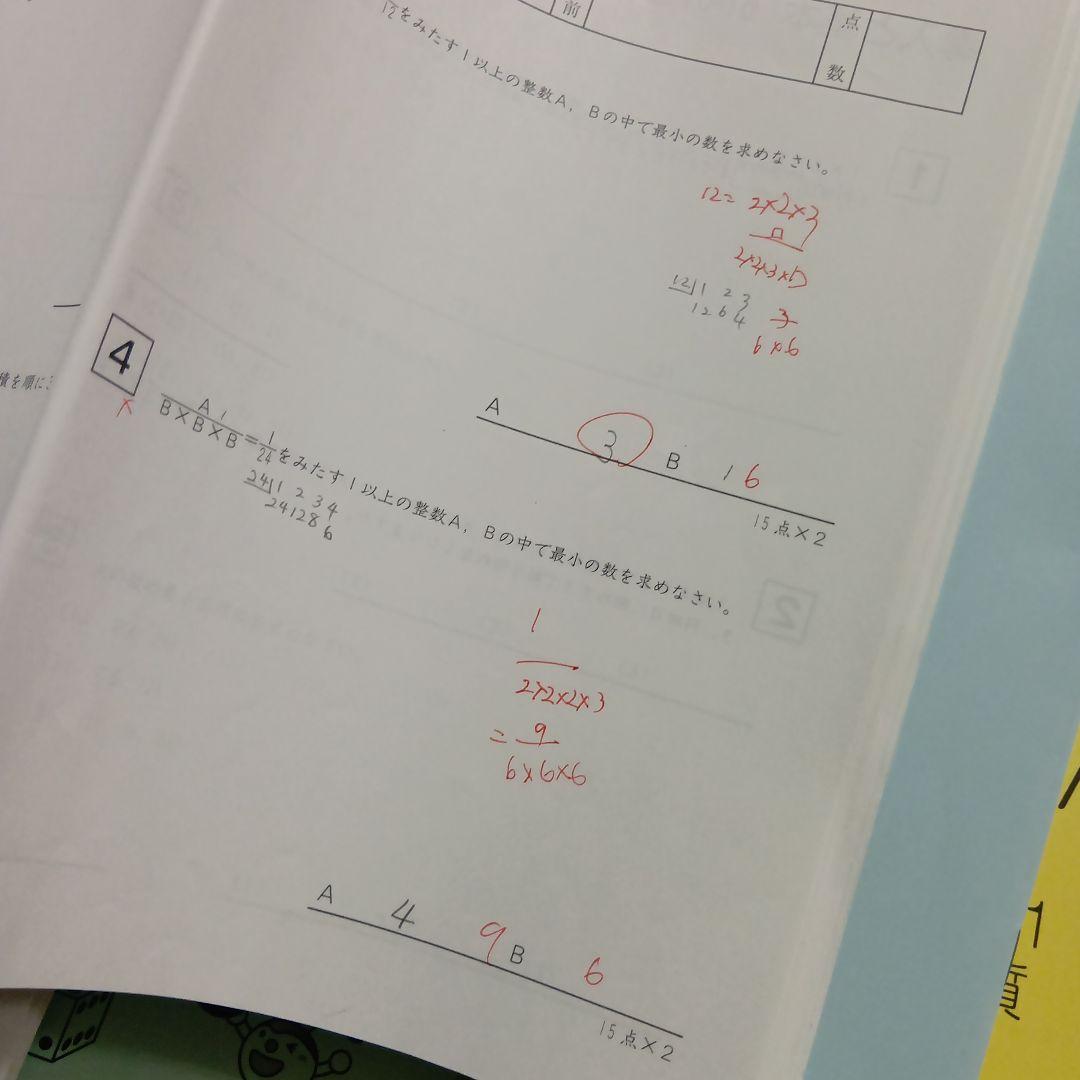 前
点
数
12をみたす1以上の整数A，Bの中で最小の数を求めなさい。
12= 2×2×3
12 1 2 3
12 6 4
3
6×6
A 3 B 1 6
15点×2
4
A 1
B×B×B
=
1
24
をみたす1以上の整数A，Bの中で最小の数を求めなさい。
24 1 2 3 4
24 12 8 6
1
2×2×2×3
= 9
6×6×6
A 4 9 B 6
15点×2
積を順に
1
2
1